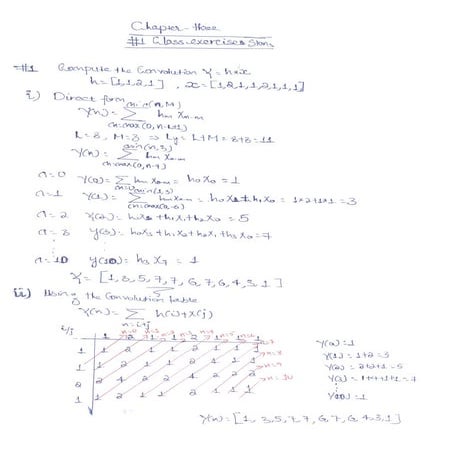 Chapter-three
#1 Class-exercises Soln
#1 Compute the Convolution Y = h*x
h = [1,1,2,1] , x = [1,2,1,1,2,1,1,1]
i) Direct form
min(n, M)
Y(n) = ∑ hm xn-m
m=max(0, n-L+1)
L = 8, M = 3 ⇒ Ly = L+M = 8+3 = 11
min(n,3)
Y(n) = ∑ hm xn-m
m=max(0, n-7)
n=0 Y(0) = ∑ hm xn-m = h0x0 = 1
n=1 Y(1) = ∑ hm xn-m = h0x1 + h1x0 = 1×2+1×1 = 3
n=2 Y(2) = h0x2 + h1x1 + h2x0 = 5
n=3 y(3) = h0x3 + h1x2 + h2x1 + h3x0 = 7
n=10 y(10) = h3x7 = 1
Y = [1, 3, 5, 7, 7, 6, 7, 6, 4, 3, 1]
ii) Using the Convolution table
Y(n) = ∑ h(i)*x(j)
n=i+j
i/j 1 2 1 1 2 1 1 1
1 1 2 1 1 2 1 1 1
1 1 2 1 1 2 1 1 1
2 2 4 2 2 4 2 2 2
1 1 2 1 1 2 1 1 1
n=10
Y(0) = 1
Y(1) = 1+2 = 3
Y(2) = 2+2+1 = 5
Y(3) = 1+4+1+1 = 7
Y(10) = 1
Y(n) = [1, 3, 5, 7, 7, 6, 7, 6, 4, 3, 1]